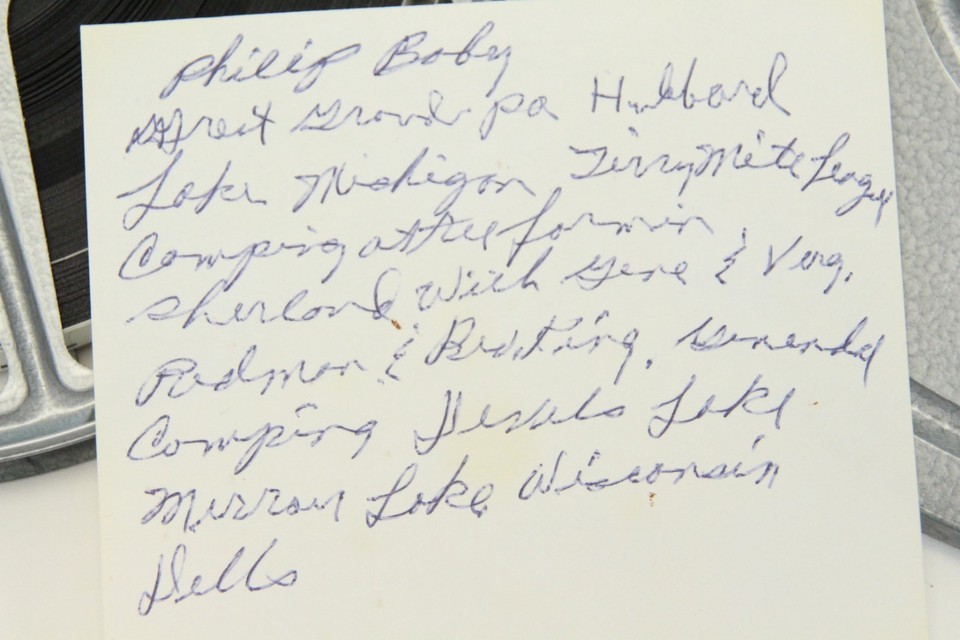 Philip Baby
Great Grand pa Hubbard
Lake Michigan Terry Mite League
Camping at the farm in
Sherland with Gene & Virg.
Radman & Boating,
Camping Devals Lake
Mirrow Lake Wisconsin
Dells